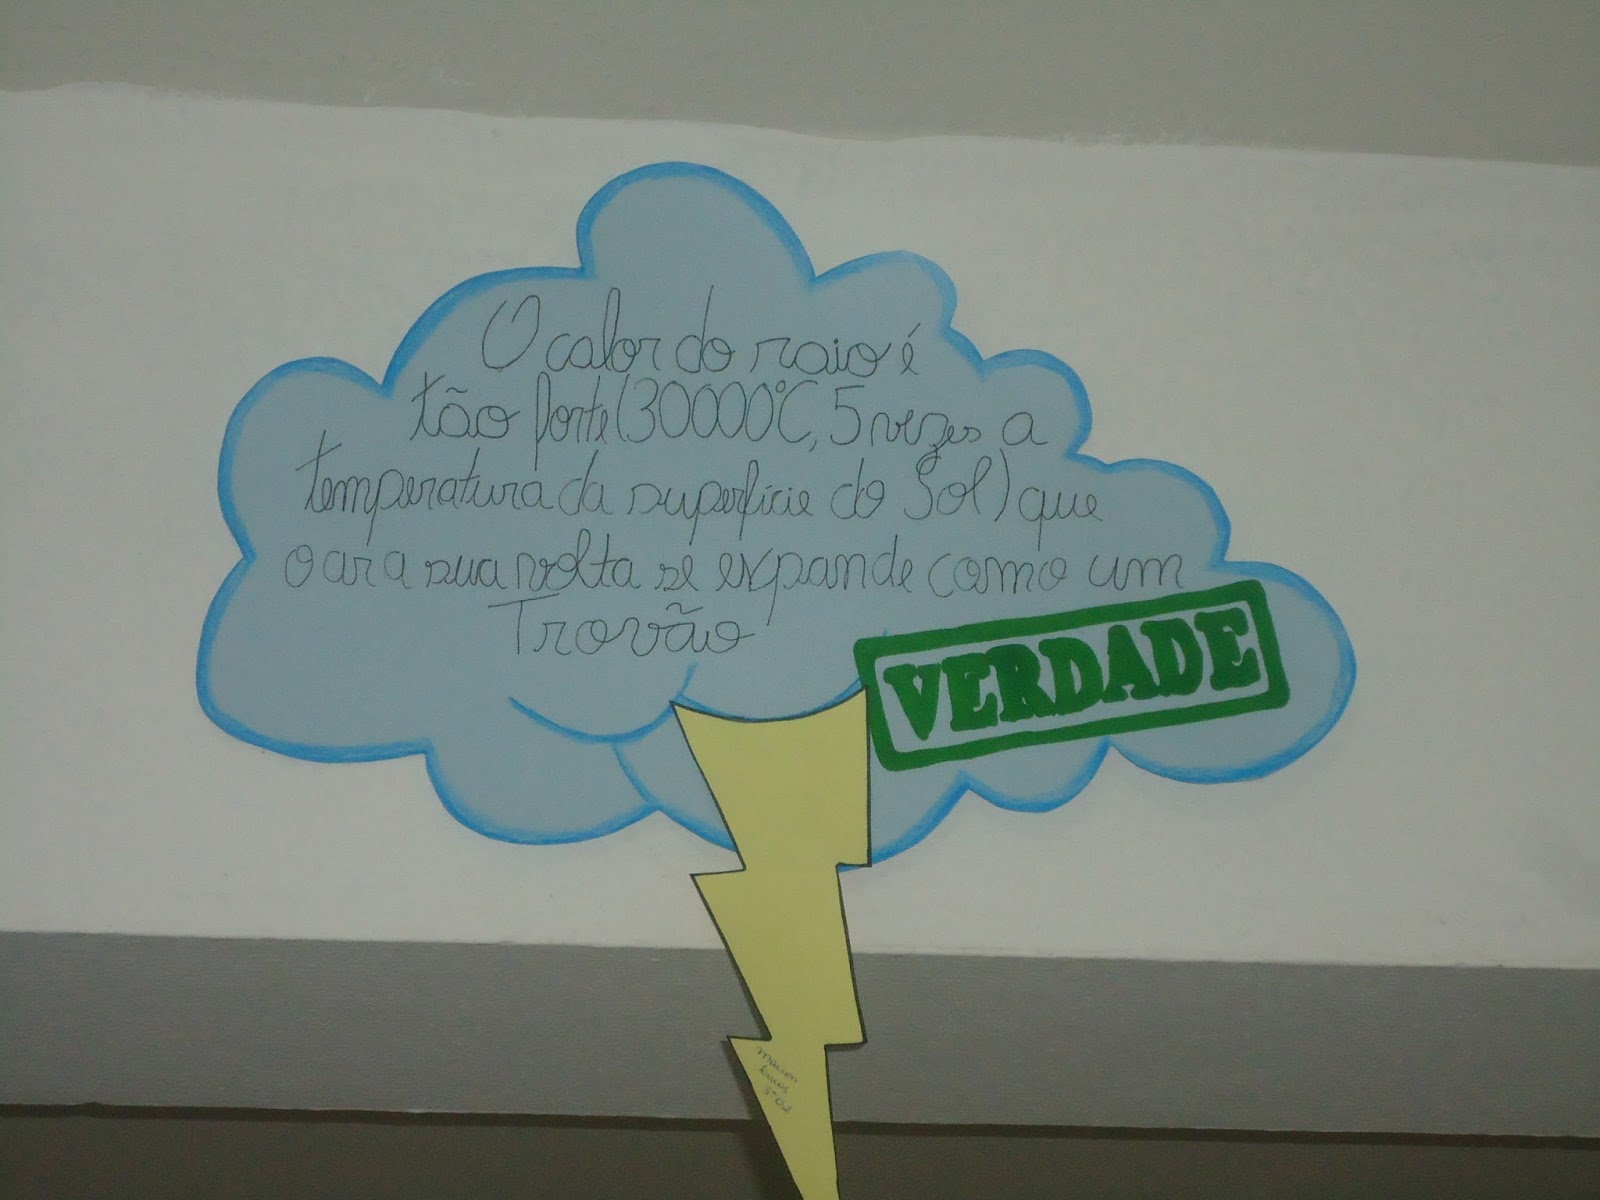 O calor do raio é
tão forte (30000°C, 5 vezes a
temperatura da superfície do Sol) que
o ar a sua volta se expande como um
Trovão
VERDADE